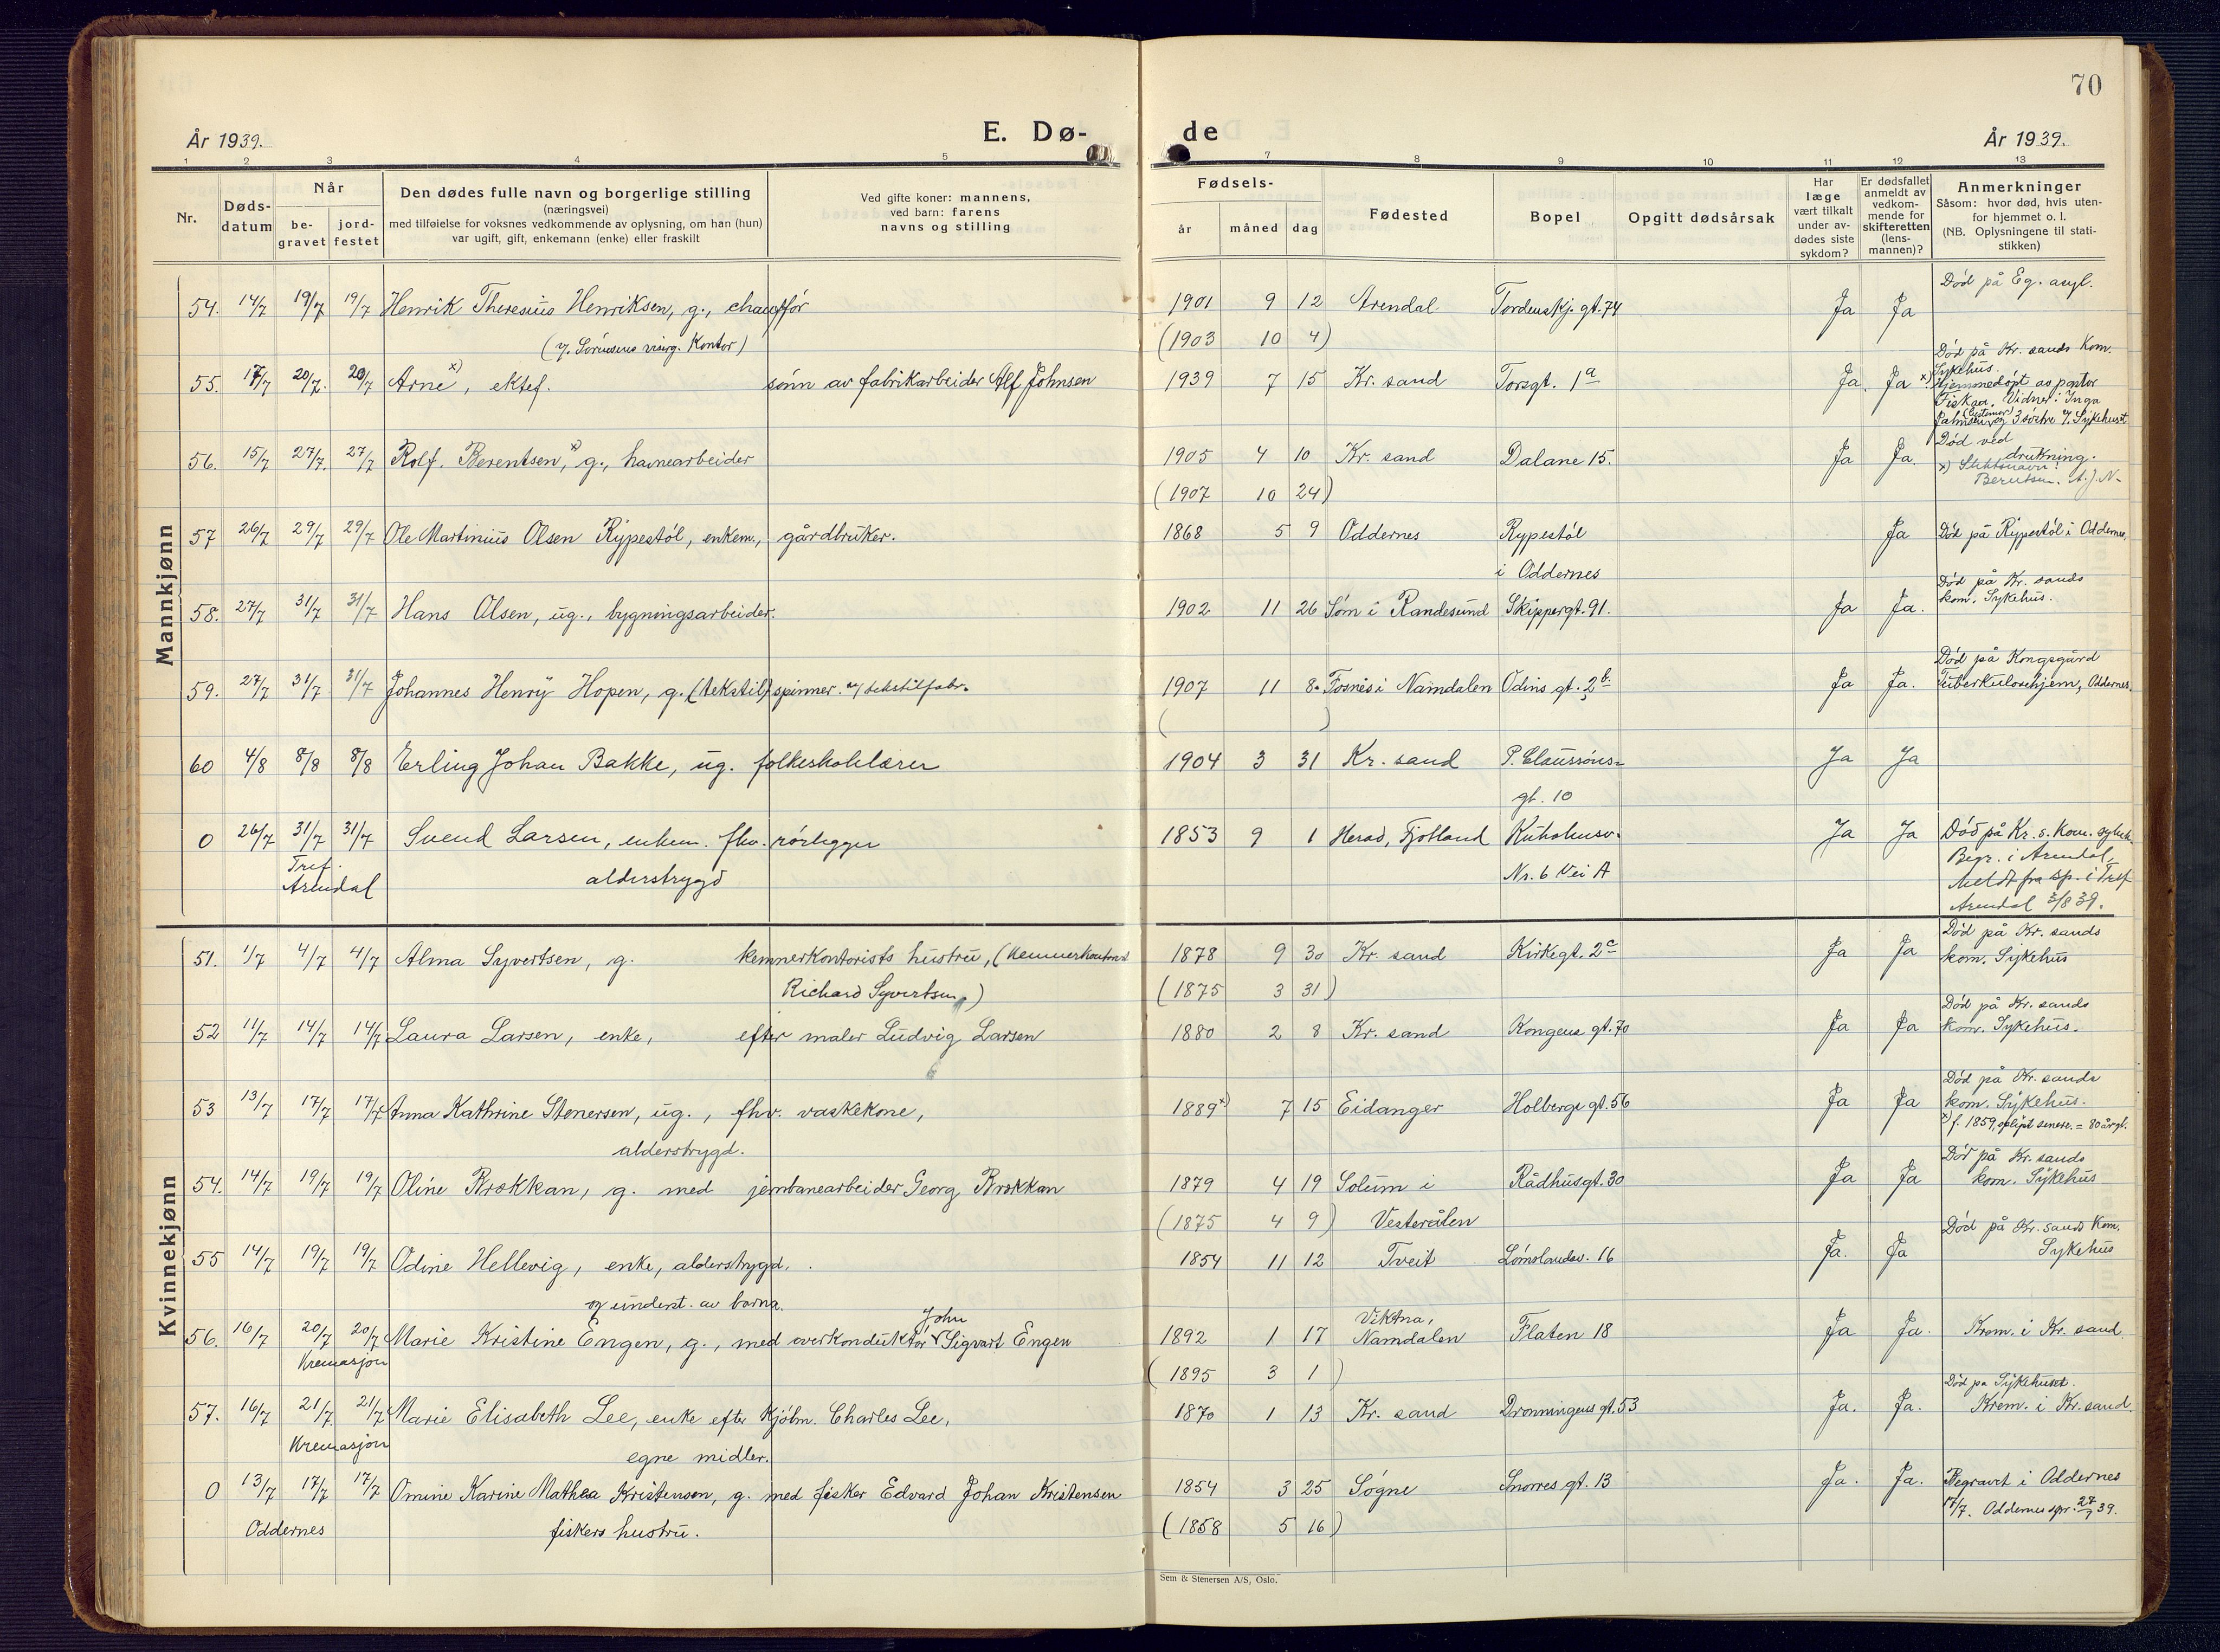 70
År 1939.
E. Dø-
de
År 1939.
1 2 3 4 5 7 8 9 10 11 12 13
Nr.
Døds-
datum
Når
be-
gravet
jord-
festet
Den dødes fulle navn og borgerlige stilling
(næringsvei)
med tilføielse for voksnes vedkommende av oplysning, om han (hun)
var ugift, gift, enkemann (enke) eller fraskilt
Ved gifte koner: mannens,
ved barn: farens
navns og stilling
Fødsels-
år måned dag
Fødested
Bopel
Opgitt dødsårsak
Har
læge
vært tilkalt
under av-
dødes siste
sykdom?
Er dødsfallet
anmeldt av
vedkom-
mende for
skifteretten
(lens-
mannen)?
Anmerkninger
Såsom: hvor død, hvis uten-
for hjemmet o. l.
(NB. Oplysningene til stati-
stikken)
Mannkjønn
54. 14/7 19/7 19/7 Henrik Theresius Henriksen, g., chauffør 1901 9 12 Arendal Tordenskj. gt. 74 Ja Ja Død på Eg. asyl.
(1903 10 4)
(v. Sørensens viserg. Kontor)
55. 17/7 20/7. 20/7 Arne x), ektef. sønn av fabrikarbeider Alf Johnsen 1939 7 15 Kr. sand Torsgt. 1a Ja. Ja
Død på Kr. sands Kom.
Sykehus.
x) Hjemmedøpt av pastor
Fiskaa. Vidner: Inga
og 3 søstre v. Sykehuset
56. 15/7 27/7. 27/7 Rolf. Berentsen, x) g., havnearbeider 1905 4 10 Kr. sand Dalane 15. Ja Ja.
(1907 10 24)
Død ved
drukning.
x) Slektsnavn:
Berntsen.
57 26/7 29/7 29/7 Ole Martinius Olsen Rypestøl, enkem., gårdbruker. 1868 5 9 Oddernes Rypestøl Ja Død på Rypestøl i Oddernes.
i Oddernes
58. 27/7 31/7 31/7 Hans Olsen, ug., bygningsarbeider. 1902 11 26 Søm i Randesund Skippergt. 91. Ja Ja.
Død på Kr. sands
kom. Sykehus.
59. 27/7 31/7 31/7 Johannes Henry Hopen, g. (tekstil) spinner. v/ tekstilfabr. 1907 11 8. Fosnes i Namdalen Odins gt. 2b. Ja Ja.
( )
Død på Kongsgård
Tuberkulosehjem, Oddernes.
60 4/8 8/8 8/8 Erling Johan Bakke, ug. folkeskolelærer 1904 3 31 Kr. sand P. Claussøns- Ja Ja
gt. 10
0 26/7 31/7 31/7 Svend Larsen, enkem. fhv. rørlegger 1853 9 1 Herad, Fjotland Kuholmsv. Ja Ja
Tref.
Arendal
alderstrygd
Nr. 6 Vei A
Død på Kr. s. Kom. sykeh.
Begr. i Arendal,
Meldt fra sp. i Tref
Arendal 3/8 39.
Kvinnekjønn
51. 1/7 4/7 4/7 Alma Syvertsen, g. kemnerkontorists hustru, (Kemnerkontorist 1878 9 30 Kr. sand Kirkegt. 2c Ja Ja
Richard Syvertsen.) (1875 3 31)
Død på Kr. sands
kom. Sykehus
52 11/7 14/7 14/7 Laura Larsen, enke, efter maler Ludvig Larsen 1880 2 8 Kr. sand Kongens gt. 70 Ja Ja
Død på Kr. sands
kom. Sykehus.
53 13/7 17/7 17/7 Anna Kathrine Stenersen, ug., fhv. vaskekone, 1889 x) 7 15 Eidanger Holbergs gt. 56 Ja Ja
alderstrygd.
Død på Kr. sands
kom. Sykehus.
x) f. 1859, oplyst senere. = 80 år gl.
54. 14/7 19/7 19/7 Oline Brokkan, g. med jernbanearbeider Georg Brokkan 1879 4 19 Solum i Rådhusgt. 30 Ja Ja
(1875 4 9) Vesterålen
Død på Kr. sands
kom. Sykehus
55 14/7 19/7 19/7 Odine Hellevig, enke, alderstrygd. 1854 11 12 Tveit Lømslandsv. 16 Ja. Ja
og underst. av barna.
Død på Kr. sands Kom.
Sykehus
John
56. 16/7 20/7 20/7 Marie Kristine Engen, g., med overkonduktør Sigvart Engen 1892 1 17 Viktna, Namdalen Flaten 18 Ja Ja. Krem. i Kr. sand.
Kremasjon (1895 3 1)
57. 16/7 21/7 21/7 Marie Elisabeth Lee, enke efter Kjøbm. Charles Lee, 1870 1 13 Kr. sand Dronningens gt. 53 Ja. Ja.
Kremasjon
egne midler.
Død på Sykehuset.
Krem. i Kr. sand.
0 13/7 17/7 17/7 Omine Karine Mathea Kristensen, g. med fisker Edvard Johan Kristensen 1854 3 25 Søgne Snorres gt. 13 Ja. Ja.
Oddernes fiskers hustru. (1858 5 16)
Begravet i Oddernes
17/7. Oddernes spr. 27/7 39.
Sem & Stenersen A/S, Oslo.